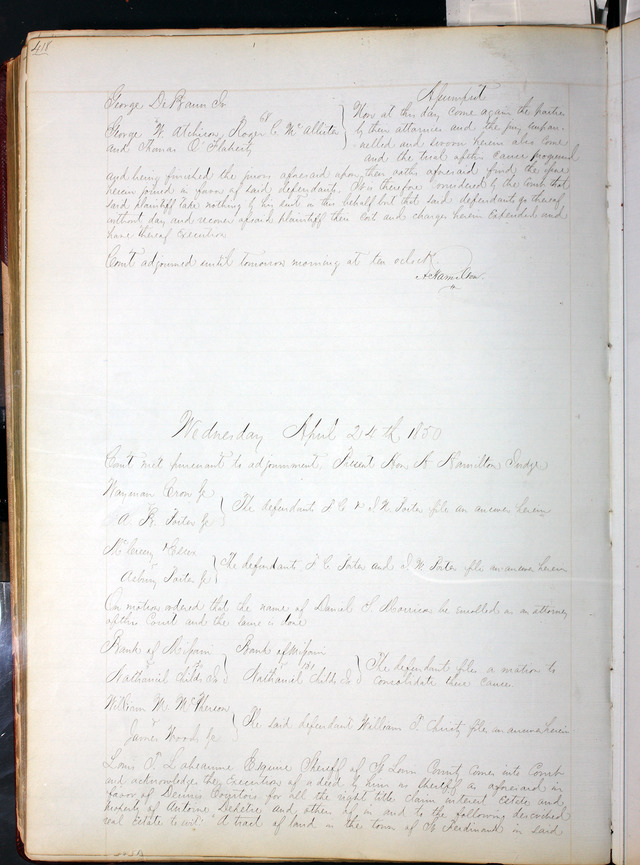 418
George De Baun Sr
68
George W. Atchison, Roger C. McAllister
and Thomas O'Flaherty
Assumpsit
Now at this day come again the parties
by their attornies and the jury empan-
nelled and sworn herein also come
and the trial of this cause progressed
and being finished the jurors aforesaid upon their oaths aforesaid find the issue
herein joined in favor of said defendants. It is therefore considered by the Court that
said plaintiff take nothing by his suit in this behalf but that said defendants go thereof
without day and recover of said plaintiff their cost and charges herein expended and
have thereof execution
Court adjourned until tomorrow morning at ten oclock.
A Hamilton
Wednesday April 24th 1850
Court met pursuant to adjournment. Present Hon A Hamilton Judge
Wayman Crow &c
A. R. Porter &c
The defendants F C & J W. Porter file an answer herein
McCreery &
Asbury Porter &c
The defendants F C Porter and J W Porter file an answer herein
On motion ordered that the name of Daniel S Morrison be enrolled as an attorney
of this Court and the same is done
Bank of Missouri
Nathaniel Childs Jr
Bank of Missouri
Nathaniel Childs Jr
The defendant files a motion to
consolidate these cause
William M. McPherson
James Wood &c
The said defendant William T. Christy files an answer herein
Louis T. Labeaume Esquire Sheriff of St Louis County comes into Court
and acknowledges the execution of a deed by him as sheriff as aforesaid in
favor of Dennis Courtois for all the right title claim interest Estate and
property of Antoine and others of in and to the following described
real Estate to wit: A tract of land in the town of St Ferdinand in said